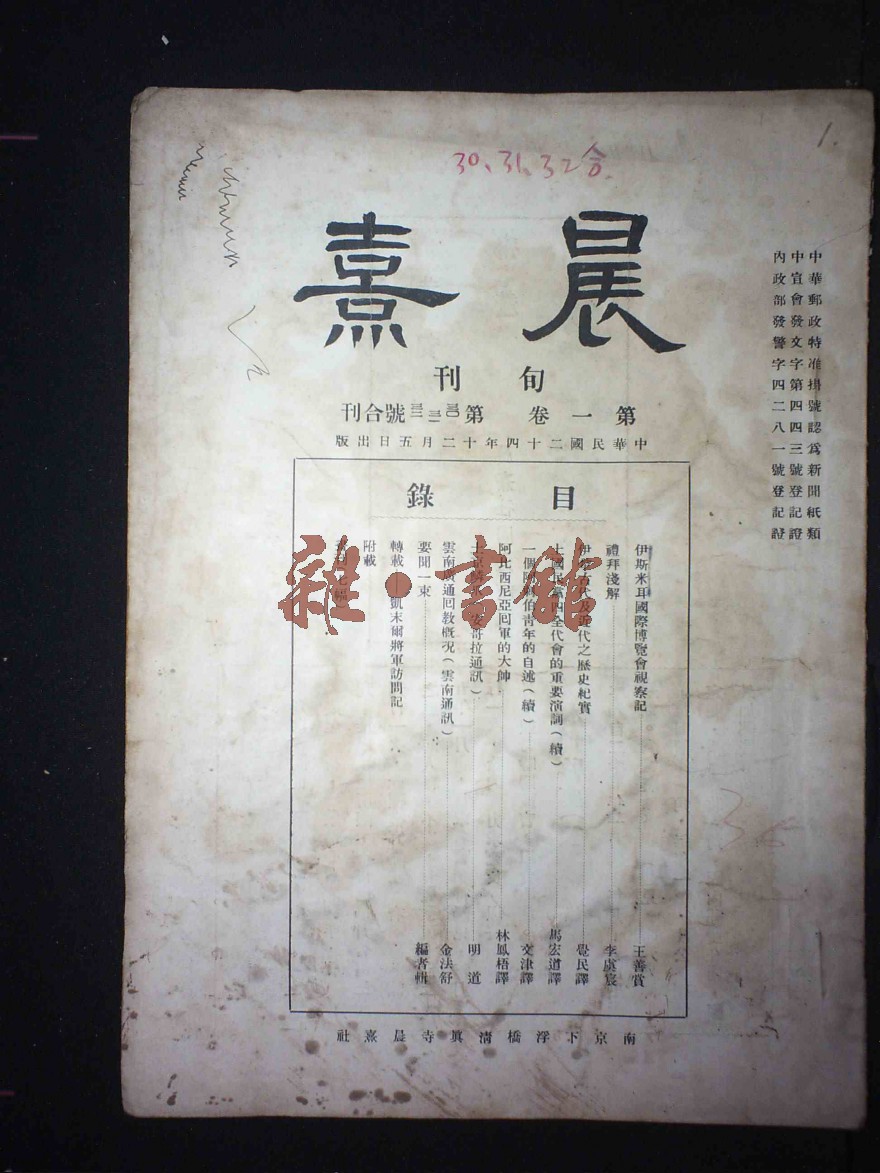 1.
30、31、32合
晨熹
旬刊
第一卷 第三〇三一三二號合刊
中華民國二十四年十二月五日出版
中華郵政特准掛號認爲新聞紙類
中宣會發文字第四四三號登記證
內政部發警字四二八一號登記證
目錄
伊斯米耳國際博覽會視察記 王善賞
禮拜淺解 李虞宸
古代及近代之歷史紀實 覺民譯
土國民黨四全代會的重要演詞(續) 馬宏道譯
一個阿伯青年的自述(續) 文津譯
阿比西尼亞回軍的大帥 林鳳梧譯
安哥拉通訊) 明道
雲南通回教概況(雲南通訊) 金法舒
要聞一束 編者輯
轉載 凱末爾將軍訪問記
附載
南京下浮橋清眞寺晨熹社
雜·書館
36